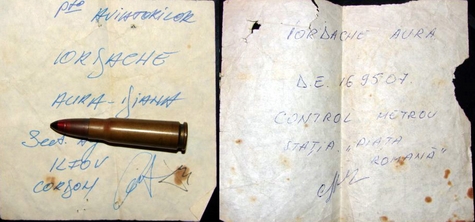 pte AVIATORILOR
IORDACHE
AURA-DIANA
ILFOV
IORDACHE AURA
D.E. 169507
CONTROL METROU
STAȚIA "PIAȚA
ROMANĂ"